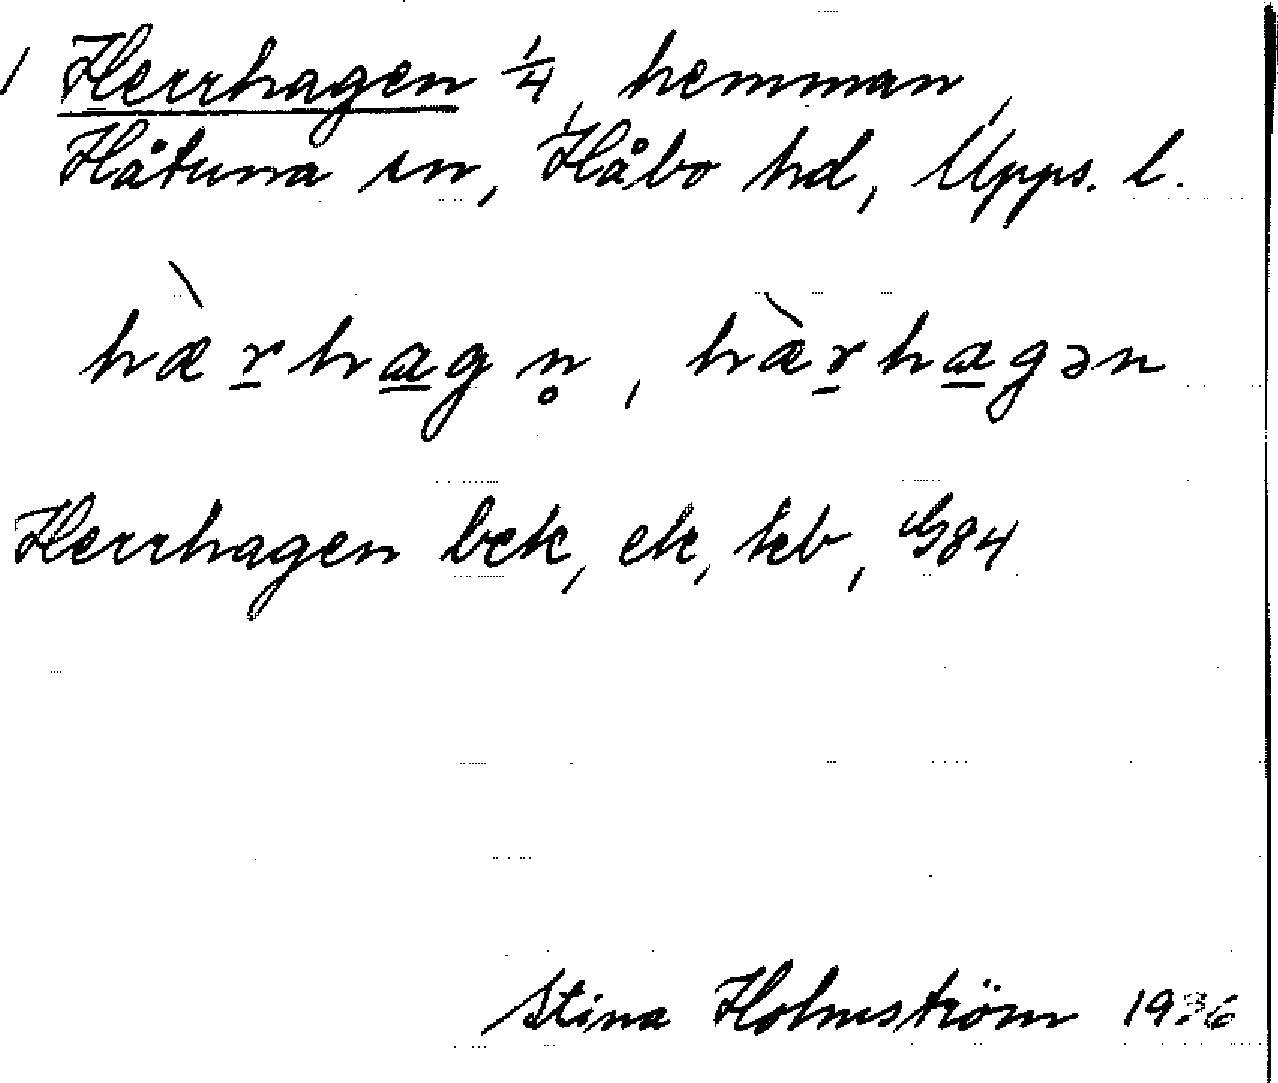 / Herrhagen 1/4, hemman,
Håtuna sn, Håbo hd, Upps. l.
hæ̀r̲ha̲gn̥, hæ̀r̲ha̲gən
Herrhagen bek, ek, kb, G84
Stina Holmström 1936